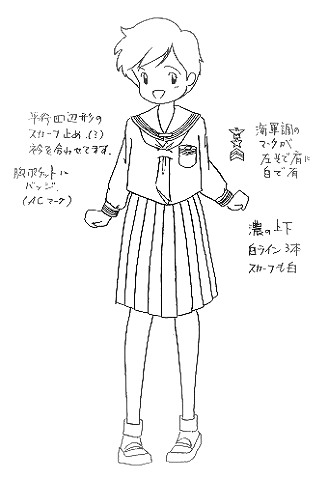 平行四辺形の
スカーフ止め.(?)
衿を合わせてます。
胸ポケットに
バッジ.
(ACマーク)
海軍調の
マークが
左そで肩に
白で有
濃の上下
白ライン3本
スカーフも白